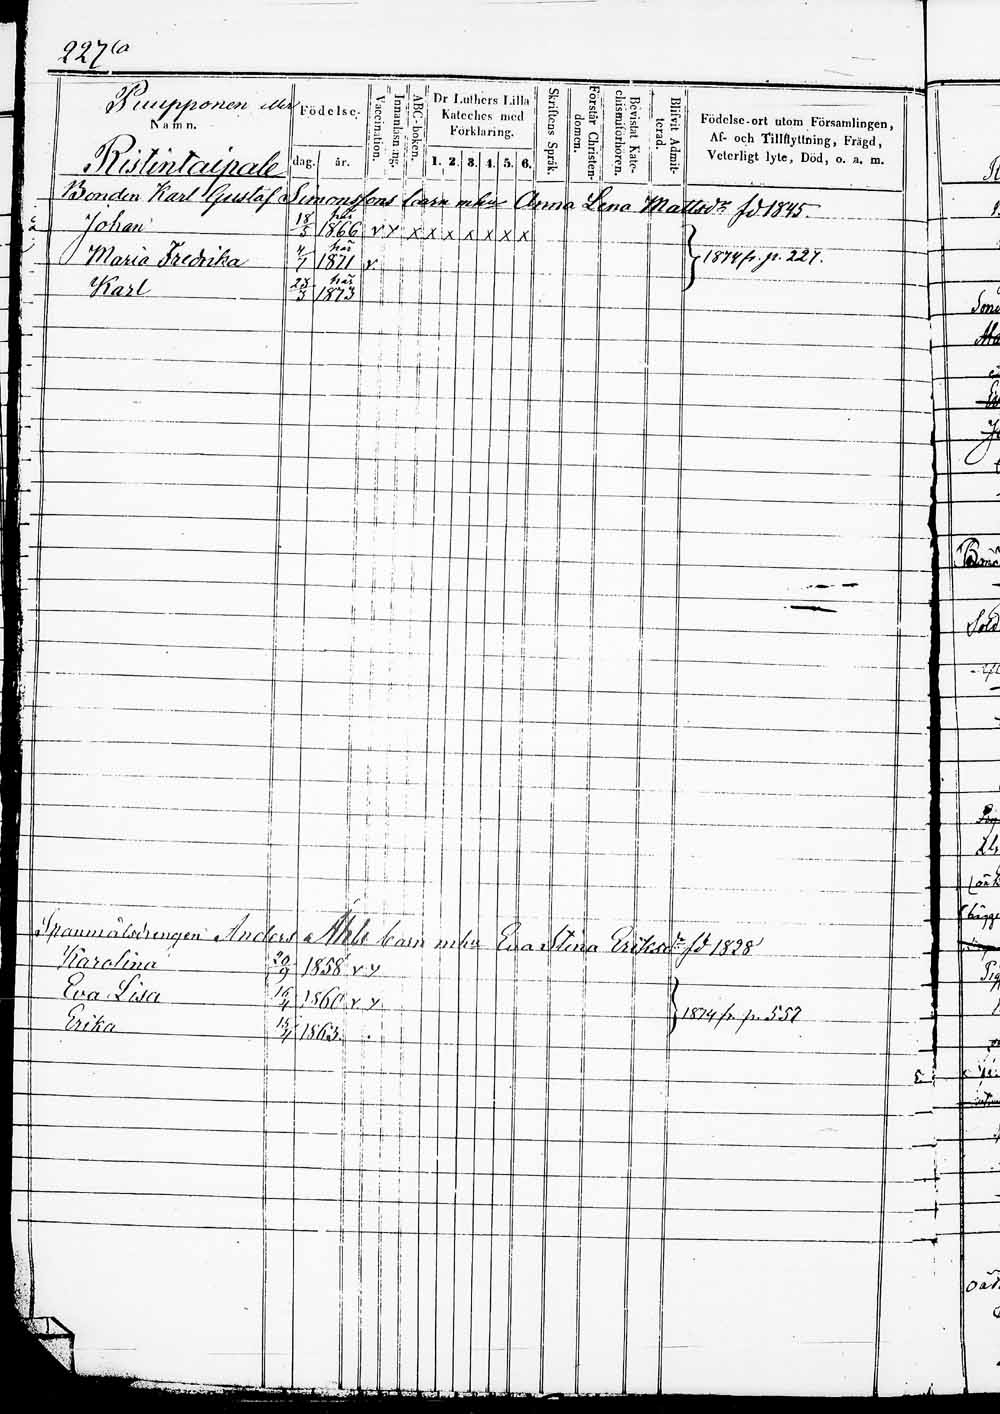 227 a
Puupponen eller
Namn.
Ristintaipale
Födelse-
dag. år.
Vaccination.
Innanläsning.
ABC-boken.
Dr Luthers Lilla
Kateches med
Förklaring.
1. 2. 3. 4. 5. 6.
Skriftens Språk.
Förstår Christen-
domen.
Bevistat Kate-
chismiförhören.
Blifvit Admit-
terad.
Födelse-ort utom Församlingen,
Af- och Tillflyttning, Frägd,
Veterligt lyte, Död, o. a. m.
Bonden Karl Gustaf Simonssons barn m hu Anna Lena Mattsdr fd 1845
Johan 18/5 här 1866 v v x x x x x x x x
Maria Fredrika 4/7 här 1871 v
Karl 23/3 här 1873
1874 fr. p. 227.
Spanmålsdrengen Anders Ahls barn m hu Eva Stina Eriksdr fd 1828
Karolina 20/9 1858 v v
Eva Lisa 16/4 1860 v v
Erika 15/4 1863.
1874 fr. p. 557